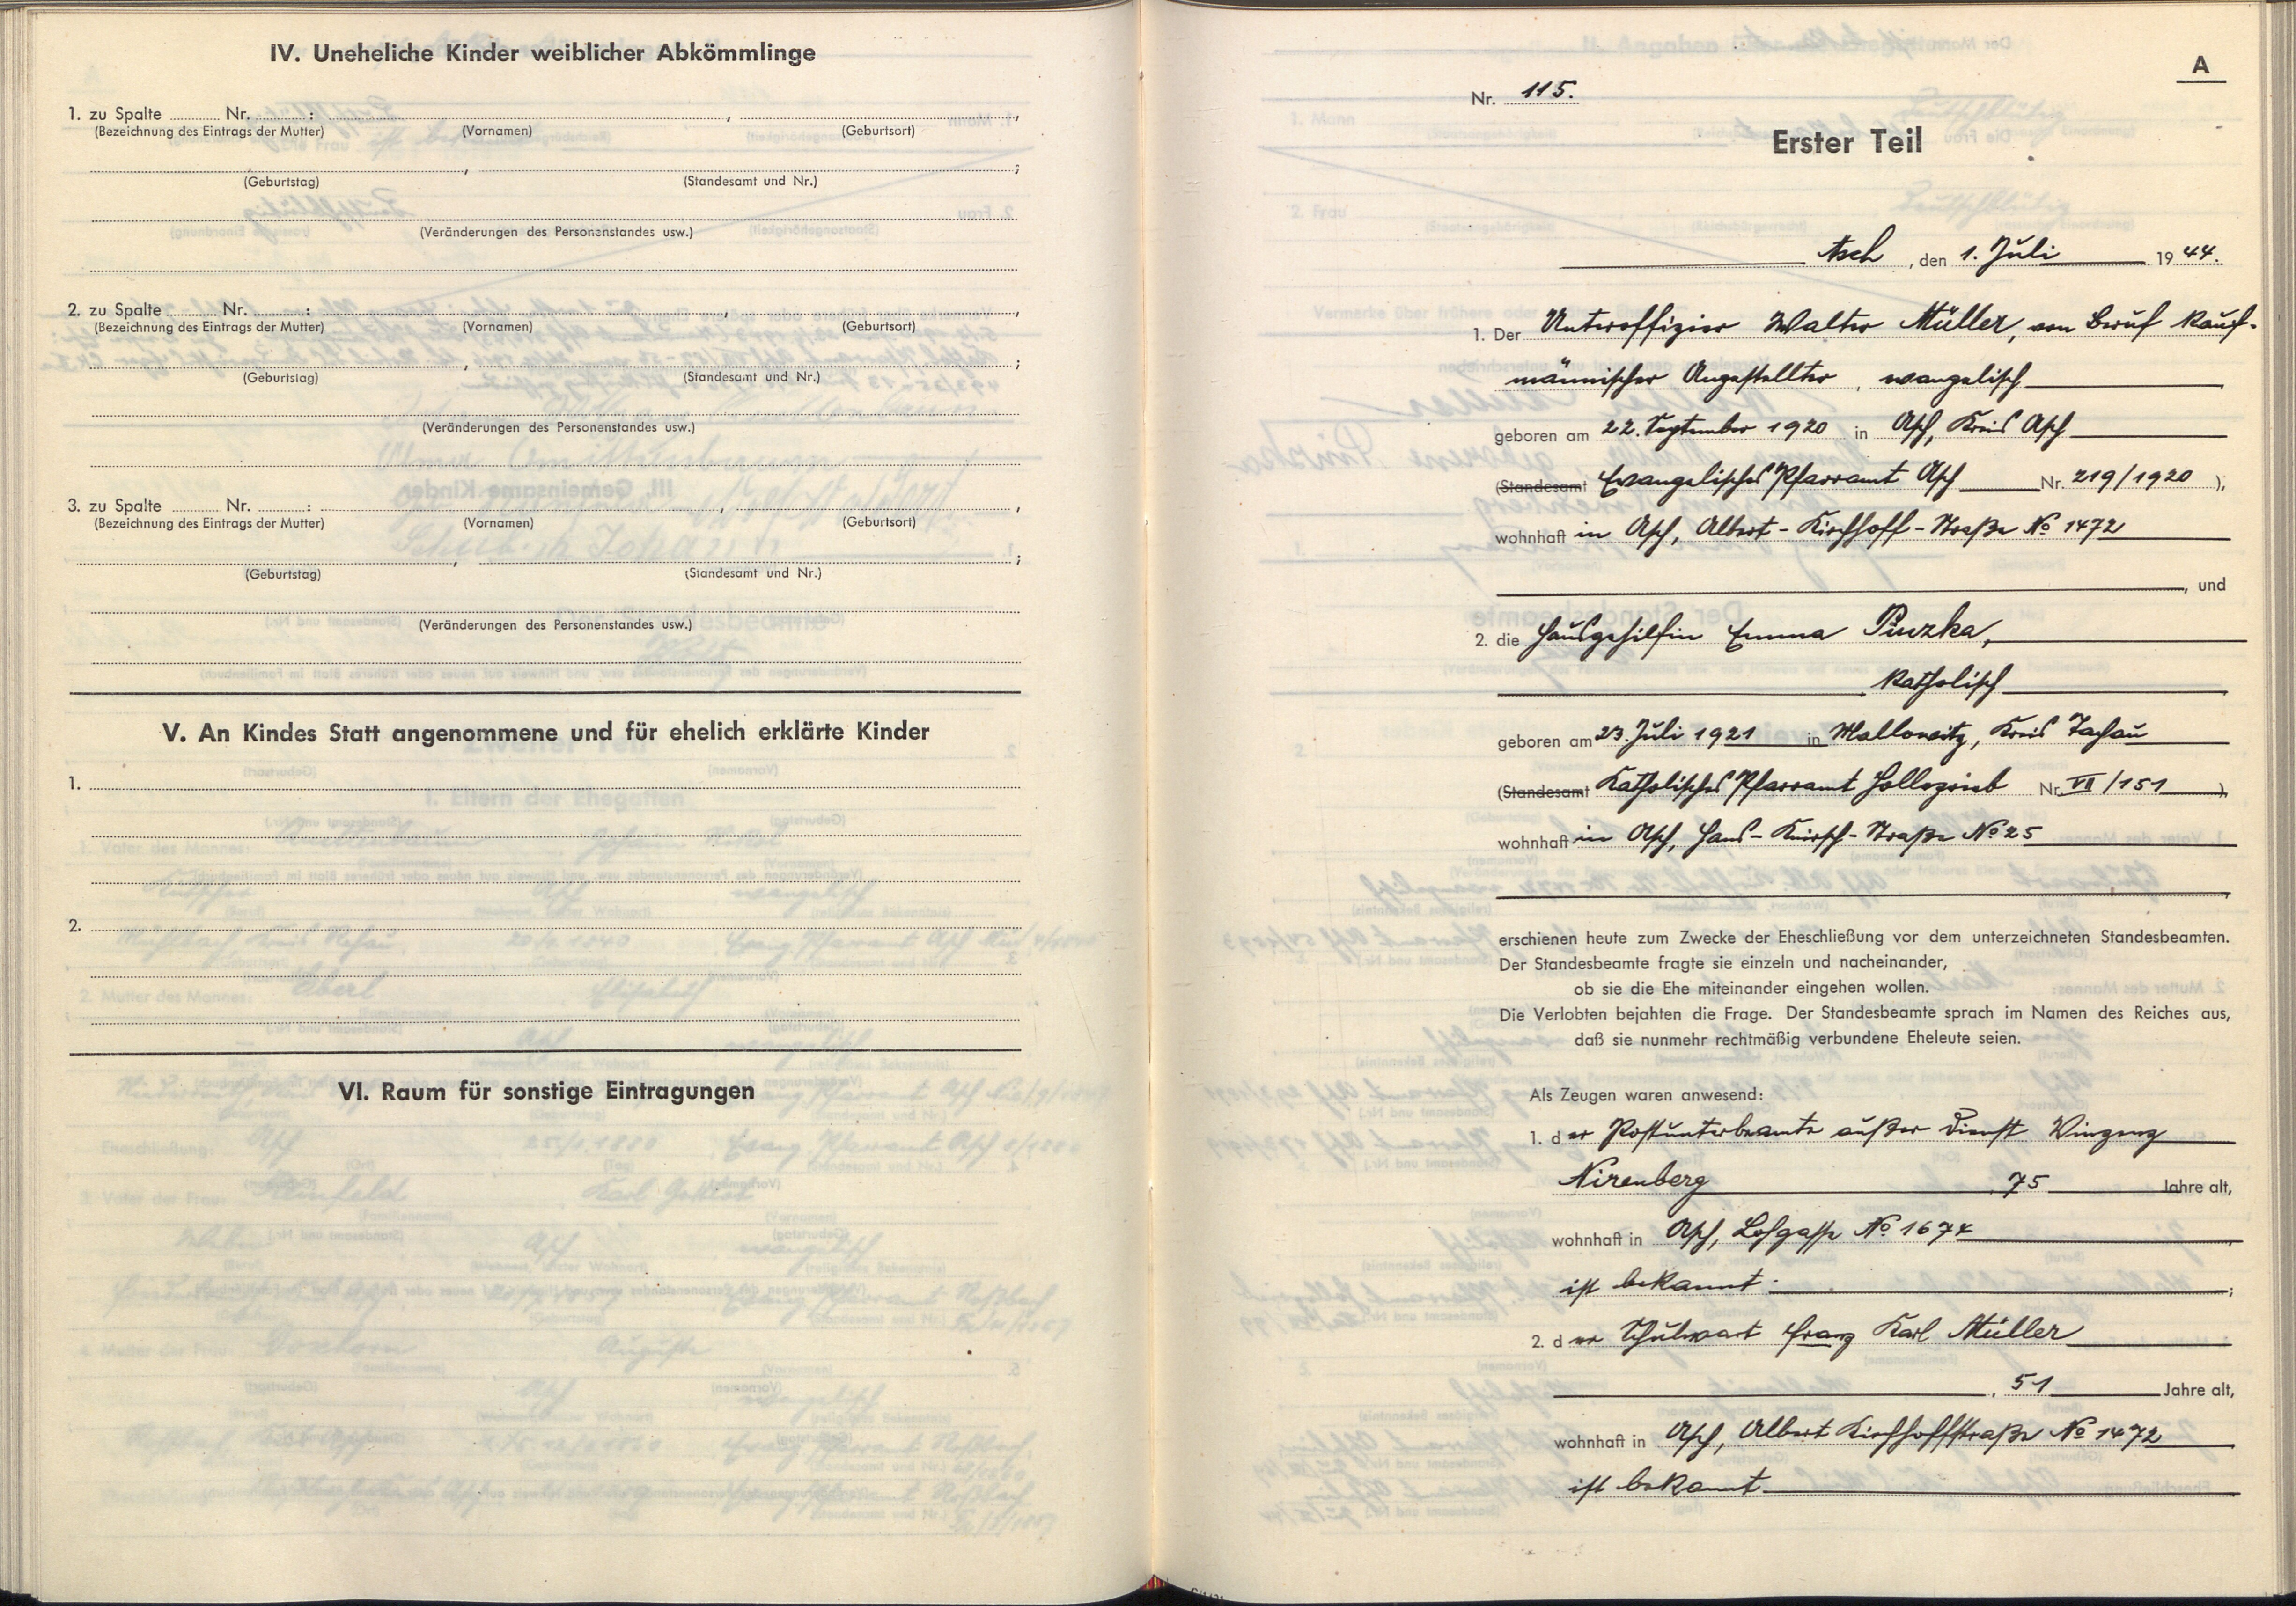 IV. Uneheliche Kinder weiblicher Abkömmlinge
1. zu Spalte ........ Nr. ........ : , ,
(Bezeichnung des Eintrags der Mutter) (Vornamen) (Geburtsort)
, ;
(Geburtstag) (Standesamt und Nr.)
(Veränderungen des Personenstandes usw.)
2. zu Spalte ........ Nr. ........ : , ,
(Bezeichnung des Eintrags der Mutter) (Vornamen) (Geburtsort)
, ;
(Geburtstag) (Standesamt und Nr.)
(Veränderungen des Personenstandes usw.)
3. zu Spalte ........ Nr. ........ : , ,
(Bezeichnung des Eintrags der Mutter) (Vornamen) (Geburtsort)
, ;
(Geburtstag) (Standesamt und Nr.)
(Veränderungen des Personenstandes usw.)
V. An Kindes Statt angenommene und für ehelich erklärte Kinder
1.
2.
VI. Raum für sonstige Eintragungen
A
Nr. 115.
Erster Teil
Asch, den 1. Juli 1944.
1. Der Unteroffizier Walter Müller, von Beruf kauf-
männischer Angestellter, evangelisch
geboren am 22. September 1920 in Asch, Kreis Asch
(Standesamt Evangelisches Pfarramt Asch Nr. 219/1920 ),
wohnhaft in Asch, Albert-Kirchhoff-Straße No 1472
, und
2. die Hausgehilfin Emma Piwzka,
katholisch
geboren am 23. Juli 1921 in Mallowitz, Kreis Tachau
(Standesamt Katholisches Pfarramt Hollezrieb Nr. VII/151 )
wohnhaft in Asch, Hans-Knirsch-Straße No 25
erschienen heute zum Zwecke der Eheschließung vor dem unterzeichneten Standesbeamten.
Der Standesbeamte fragte sie einzeln und nacheinander,
ob sie die Ehe miteinander eingehen wollen.
Die Verlobten bejahten die Frage. Der Standesbeamte sprach im Namen des Reiches aus,
daß sie nunmehr rechtmäßig verbundene Eheleute seien.
Als Zeugen waren anwesend:
1. der Postunterbeamte außer Dienst Vinzenz
Nirenberg, 75 Jahre alt,
wohnhaft in Asch, Lohgasse No 1674
ist bekannt ;
2. der Schulwart Franz Karl Müller
, 51 Jahre alt,
wohnhaft in Asch, Albert Kirchhoffstraße No 1472
ist bekannt.